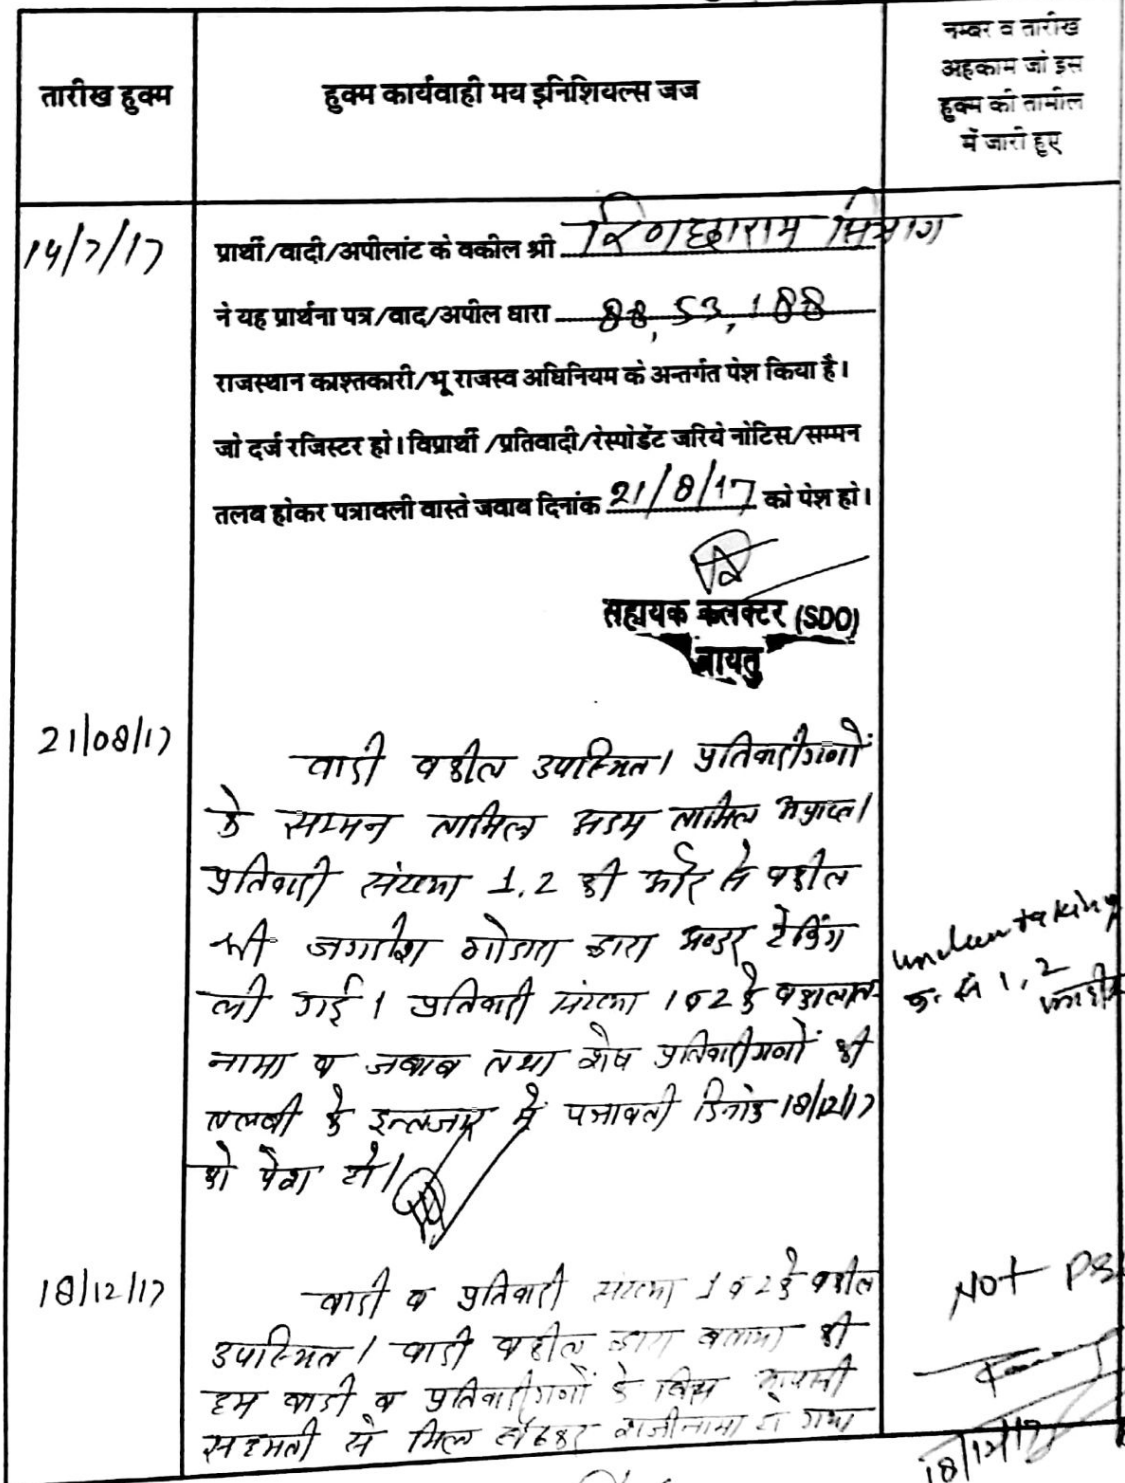 तारीख हुक्म
हुक्म कार्यवाही मय इनिशियल्स जज
नम्बर व तारीख
अहकाम जो इस
हुक्म की तामील
में जारी हुए
14/7/17
प्रार्थी/वादी/अपीलांट के वकील श्री
ने यह प्रार्थना पत्र/वाद/अपील धारा 88, 53, 188
राजस्थान काश्तकारी/भू राजस्व अधिनियम के अन्तर्गत पेश किया है।
जो दर्ज रजिस्टर हो। विप्रार्थी /प्रतिवादी/रेस्पोडेंट जरिये नोटिस/सम्मन
तलब होकर पत्रावली वास्ते जवाब दिनांक 21/8/17 को पेश हो।
सहायक कलक्टर (SDO)
बायतु
21/08/17
वादी वकील उपस्थित। प्रतिवादीगणों
के सम्मन तामिल अदम तामिल अप्राप्त।
प्रतिवादी संख्या 1, 2 की और से वकील
श्री जगदीश गोदारा द्वारा अण्डर टेकिंग
ली गई। प्रतिवादी संख्या 1 व 2 के वकालत-
नामा व जवाब तथा शेष प्रतिवादीगणों की
तलबी के इन्तजार में पत्रावली दिनांक 18/12/17
को पेश हो।
undertaking
1, 2
18/12/17
वादी व प्रतिवादी संख्या 1 व 2 के वकील
उपस्थित। वादी वकील द्वारा बताया की
हम वादी व प्रतिवादीगणों के बिच आपसी
सहमती से मिल बैठकर राजीनामा हो गया
Not
18/12/17